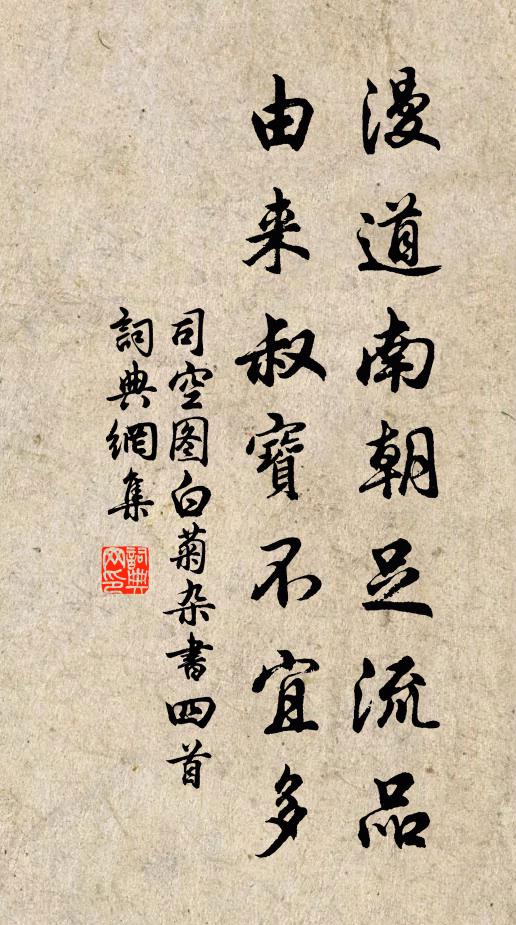 漫道南朝足流品
由来叔寶不宜多
司空图白菊杂書四首
詞典網集
詞典网印